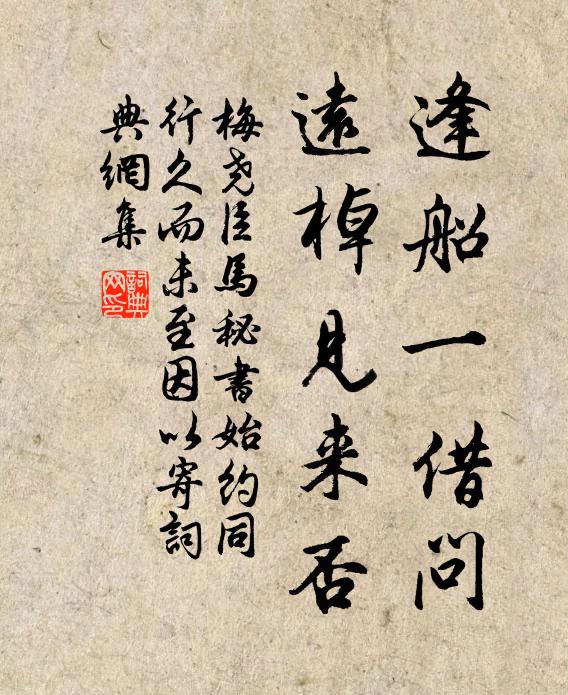 逢船一借问
遠棹見来否
梅尧臣馬秘書始约同
行久而未至因以寄詞
典網集
詞典网印